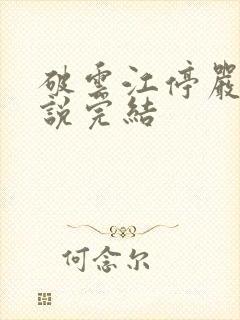 破雲江停嚴
説完結
何念尔